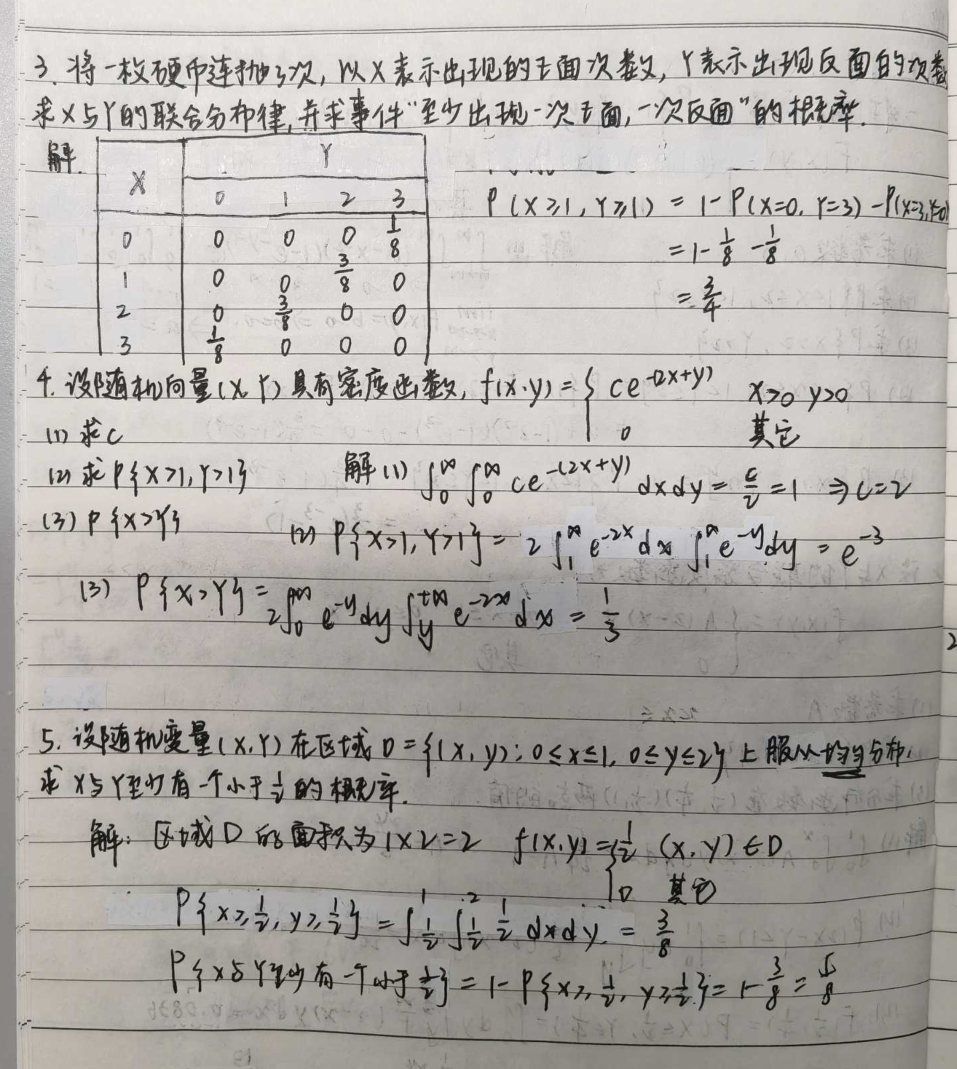 3. 将一枚硬币连抛3次, 以X表示出现的正面次数, Y表示出现反面的次数
求X与Y的联合分布律, 并求事件“至少出现一次正面, 一次反面”的概率.
解.
X Y
0 1 2 3
0 0 0 0 1/8
1 0 0 3/8 0
2 0 3/8 0 0
3 1/8 0 0 0
P(X≥1, Y≥1) = 1-P(X=0, Y=3)-P(X=3,Y=0)
= 1-1/8-1/8
= 3/4
4. 设随机向量(X,Y)具有密度函数, f(x·y) = { ce^-(2x+y) x>0 y>0
0 其它
(1) 求C
(2) 求P{X>1, Y>1} 解(1) ∫₀^∞ ∫₀^∞ ce^-(2x+y) dxdy = c/2 = 1 ⇒ C=2
(3) P{X>Y} (2) P{X>1, Y>1} = 2∫₁^∞ e^-2x dx ∫₁^∞ e^-y dy = e^-3
(3) P{X>Y} = 2∫₀^∞ e^-y dy ∫_y^+∞ e^-2x dx = 1/3
5. 设随机变量(X,Y)在区域D={(x,y): 0≤x≤1, 0≤y≤2}上服从均匀分布,
求X与Y至少有一个小于1/2的概率.
解: 区域D的面积为1×2=2 f(x,y)={1/2 (x,y)∈D
0 其它
P{x≥1/2, y≥1/2} = ∫_1/2^1 ∫_1/2^2 1/2 dxdy. = 3/8
P{X与Y至少有一个小于1/2} = 1-P{x≥1/2, y≥1/2} = 1-3/8 = 5/8